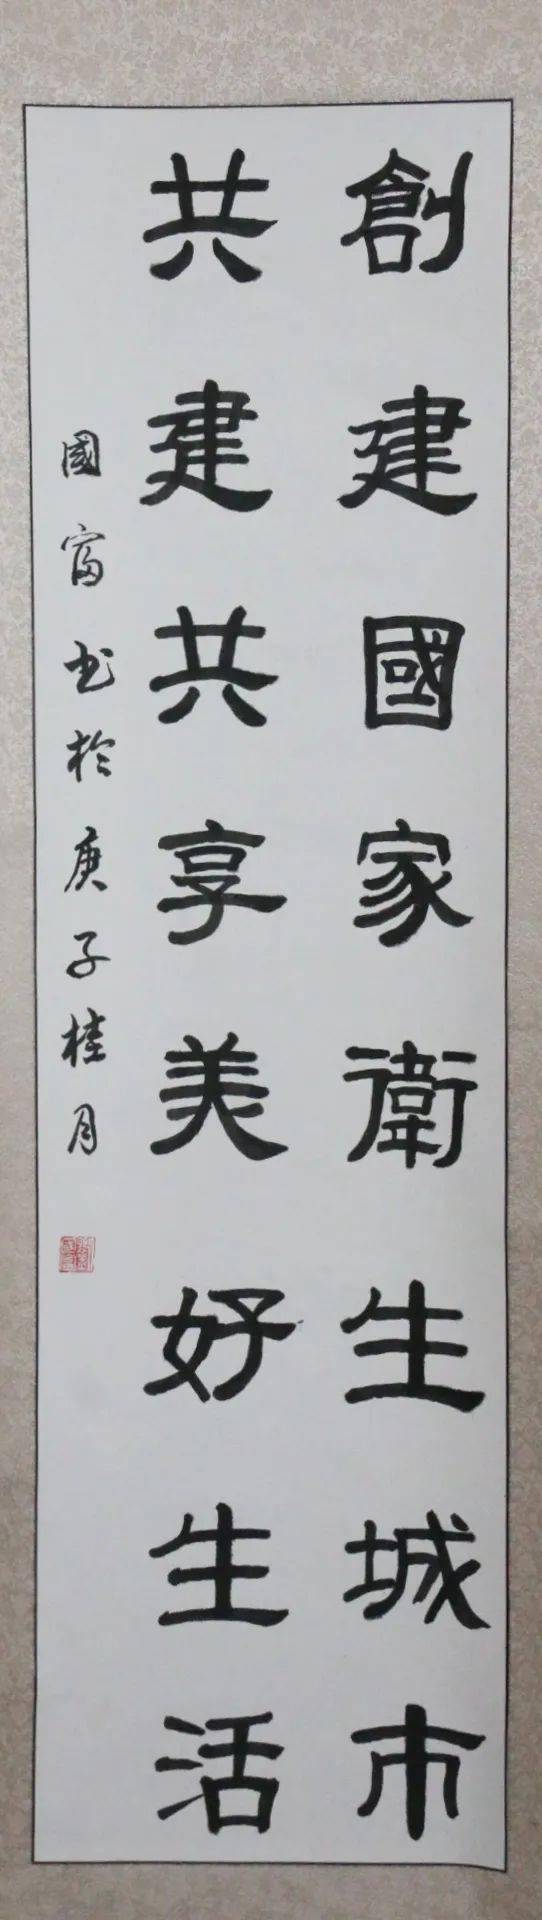 創建國家衛生城市
共建共享美好生活
國富书於庚子桂月